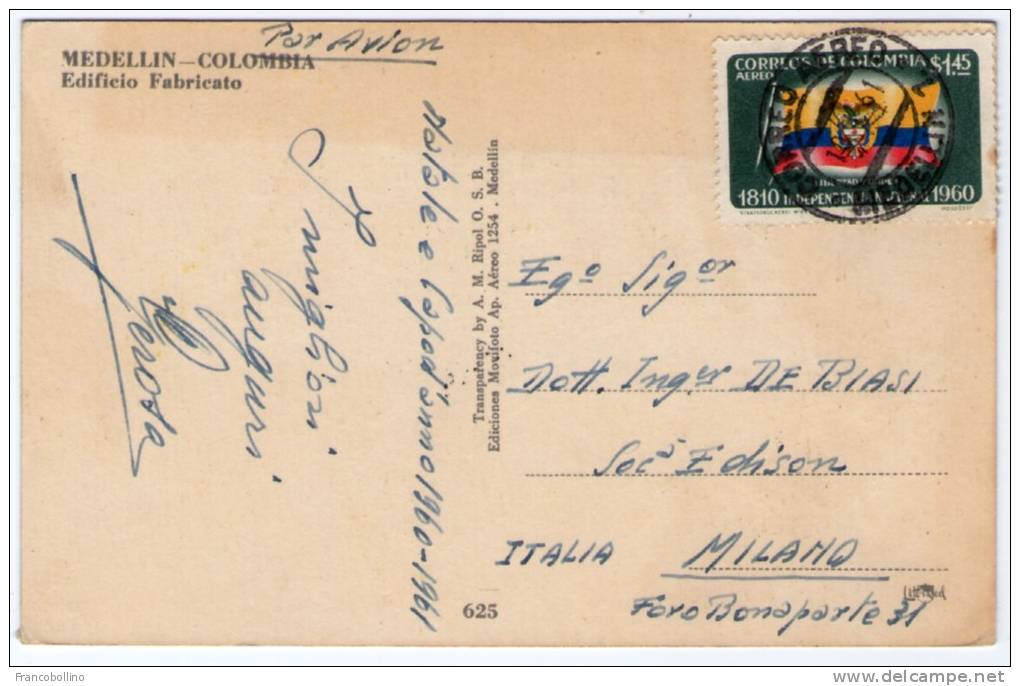 Par Avion
MEDELLIN—COLOMBIA
Edificio Fabricato
CORREOS DE COLOMBIA
AEREO
$1.45
1810 INDEPENDENCIA NACIONAL 1960
CORREO AEREO
MEDELLIN
Natale e Capod'anno 1960-1961
migliori
auguri
Gerosa
Transparency by A. M. Ripol O. S. B.
Ediciones Movifoto Ap. Aéreo 1254 . Medellin
Egº Sigor
Dott. Inger DE BIASI
Socà Edison
ITALIA MILANO
Foro Bonaparte 31
625
Francobollino
www.delcampe.net